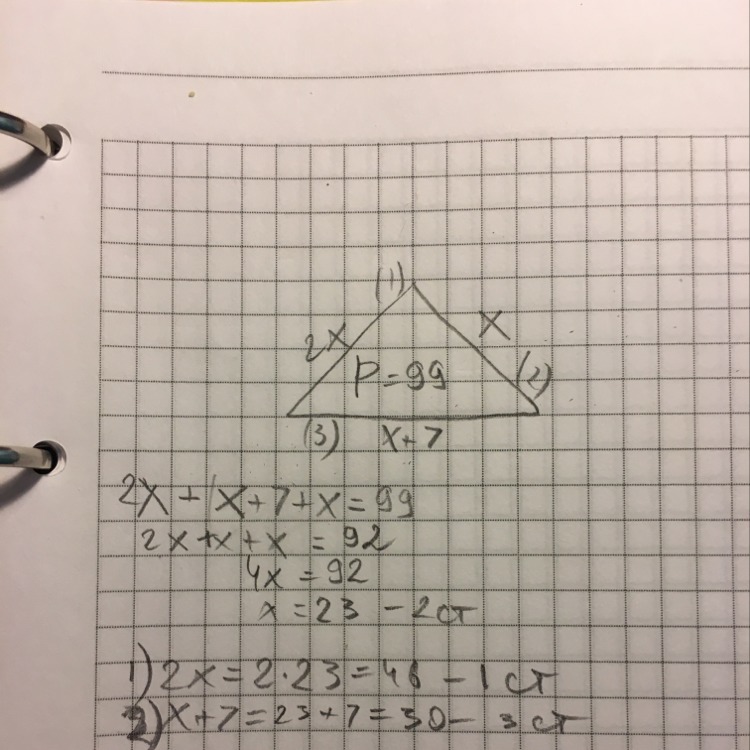 (1)
2x
x
P=99
(2)
(3)
x+7
2x+x+7+x=99
2x+x+x=92
4x=92
x=23 - 2 ст
1) 2x=2·23=46 - 1 ст
2) x+7=23+7=30 - 3 ст